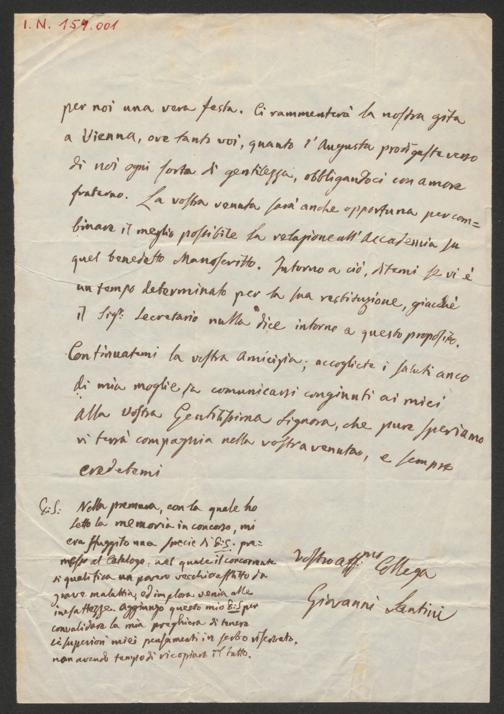 I. N. 154.001
per noi una vera festa. Ci rammenterà la nostra gita
a Vienna, ove tanto voi, quanto l'Augusta prodigaste verso
di noi ogni sorta di gentilezza, obbligandoci con amore
fraterno. La vostra venuta sarà anche opportuna per com=
binare il meglio possibile la relazione all'Accademia su
quel benedetto Manoscritto. Intorno a ciò, ditemi se vi è
un tempo determinato per la sua restituzione, giacchè
il Sigr. Secretario nulla dice intorno a questo proposito.
Continuatemi la vostra Amicizia; accogliete i saluti anco
di mia moglie da comunicarsi congiunti ai miei
alla vostra Gentilissima Signora, che pure speriamo
vi terrà compagnia nella vostra venuta, e sempre
credetemi
vostro affmo Collega
Giovanni Santini
P.S: Nella premura, con la quale ho
letto la memoria in concorso, mi
era sfuggito una specie di P.S. pre-
messo al Catalogo, nel quale il concorrente
si qualifica un povero vecchio afflitto da
grave malattia, ed implora venia alle
inesattezze. Aggiungo questo mio P.S. per
convalidare la mia preghiera di tenere
i superiori miei pensamenti in senso riservato,
non avendo tempo di ricopiare il tutto.